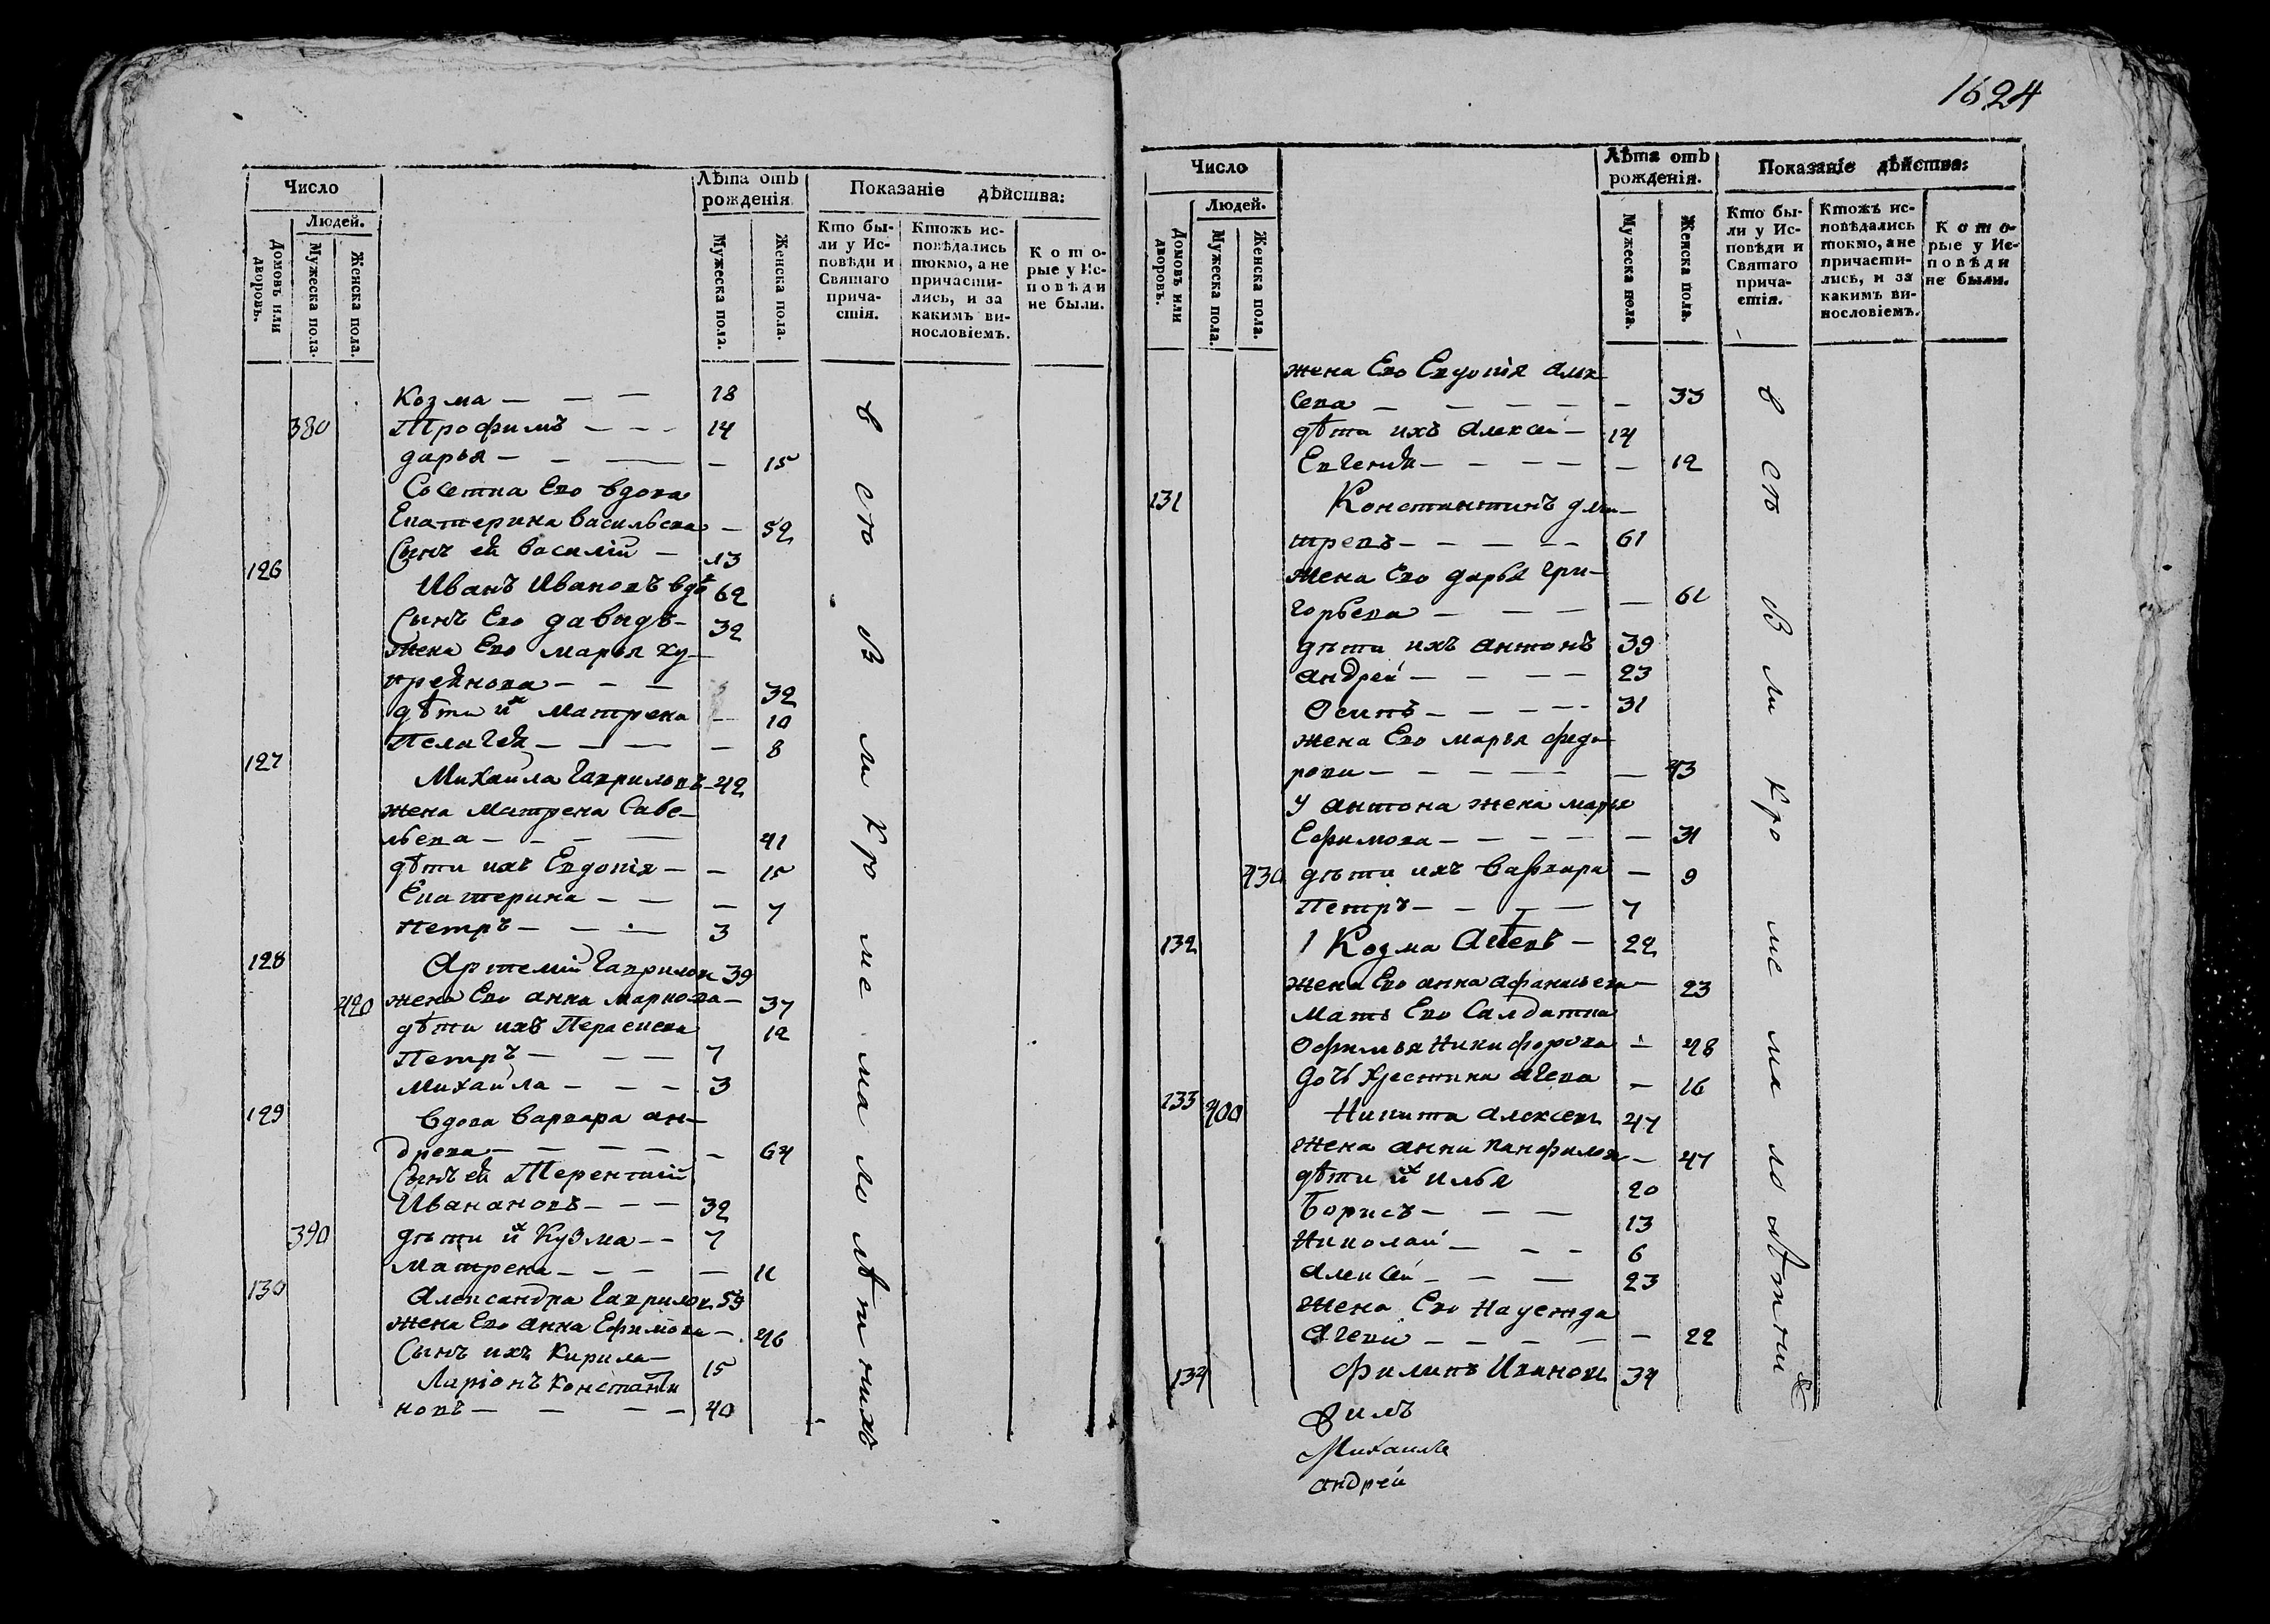 Число
Людей.
Домовъ или дворовъ.
Мужеска пола.
Женска пола.
Лѣта отъ рожденія
Мужеска пола.
Женска пола.
Показаніе дѣйства:
Кто бы-
ли у Ис-
повѣди и
Святаго
прича-
стія.
Ктожъ ис-
повѣдались
токмо, а не
причасти-
лись, и за
какимъ ви-
нословіемъ.
Кото-
рые у Ис-
повѣди
не были.
Козма — — — 18
380 Трофимъ — — — 14
дарья — — — — 15
Сосетка Его вдова
Екатерина васильева — 52
Сынъ ей василій — 13
126 Иванъ Ивановъ вдв 62
Сынъ Его давыдъ — 32
жена Его марья ку—
прейнова — — — 32
дѣти их матрена — 10
Пелагея — — — — 8
127 Михаила Гавриловъ — 42
жена матрена Саве—
льева — — — 41
дѣти ихъ Евдокія — — 15
Екатерина — — — 7
Петръ — — — 3
128 Артемій Гаврилов 39
420 жена Его анна маркова — 37
дѣти ихъ Параскева 12
Петръ — — — 7
михаила — — — 3
129 вдова варвара ан—
дреева — — — — — 64
Сынъ ей Терентий
Ивановъ — — — 32
390 дѣти их Кузма — — 7
матрена — — — — 11
130 Александра Гаврилов 59
жена Его анна Ефимова — 46
Сынъ ихъ Кирила — 15
Ларіонъ Константи
новъ — — — — 40
в сто в ми кро ме ма ло лѣт нихъ
1624
Число
Людей.
Домовъ или дворовъ.
Мужеска пола.
Женска пола.
Лѣта отъ рожденія.
Мужеска пола.
Женска пола.
Показаніе дѣйства:
Кто бы-
ли у Ис-
повѣди и
Святаго
прича-
стія.
Ктожъ ис-
повѣдались
токмо, а не
причасти-
лись, и за
какимъ ви-
нословіемъ.
Кото-
рые у Ис-
повѣди
не были.
жена Его Евдокія алек
сева — — — — — — 33
дѣти ихъ алексей — 14
Евгения — — — — — 12
131 Константинъ дми—
тревъ — — — — — 61
жена Его дарья гри—
горьева — — — — — 61
дѣти ихъ антонъ 39
андрей — — — — 23
Осипъ — — — — 31
жена Его марья федо
рова — — — — — 43
У антона жена марья
Ефимова — — — — — 31
430 дѣти ихъ варвара — 9
Петръ — — — — 7
132 Козма — 22
жена Его анна афанасьева — 23
мать Его Салдатка
Офимья Никифорова — 48
дочь Хрестина — 16
133 400 Никита алексеев 47
жена анна панфилова — 47
дѣти их илья 20
борисъ — — — 13
Николай — — — 6
алексей — — — 23
жена Его надежда
— — — — — 22
134 филипъ Иванов 34
Михаилъ
андрей